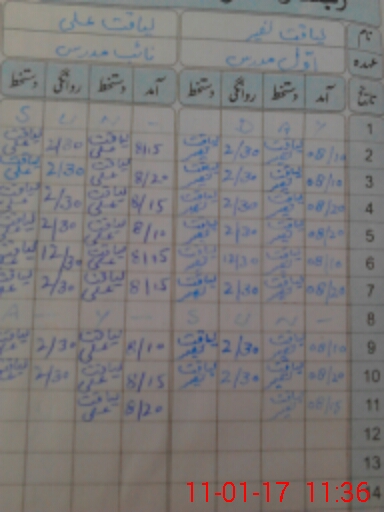 نام لیاقت نفیر لیاقت علی
عہدہ اوّل مدرس نائب مدرس
تاریخ آمد دستخط روانگی دستخط آمد دستخط روانگی دستخط
1 Y A D - N U S
2 08/10 لیاقت 2/30 لیاقت 8/15 لیاقت علی 2/30 لیاقت علی
3 08/10 لیاقت 2/30 لیاقت 8/20 لیاقت علی 2/30 لیاقت علی
4 08/20 لیاقت 2/30 لیاقت 8/15 لیاقت علی 2/30 لیاقت علی
5 08/20 لیاقت 2/30 لیاقت 8/10 لیاقت علی 2/30 لیاقت علی
6 08/10 لیاقت 12/30 لیاقت 8/15 لیاقت علی 12/30 لیاقت علی
7 08/20 لیاقت 2/30 لیاقت 8/15 لیاقت علی 2/30 لیاقت علی
8 - N U S - Y A
9 08/10 لیاقت 2/30 لیاقت 8/10 لیاقت علی 2/30 لیاقت
10 08/20 لیاقت 2/30 لیاقت 8/15 لیاقت علی 2/30 لیاقت
11 08/15 لیاقت 8/20 لیاقت علی
12
13
14
11-01-17 11:36